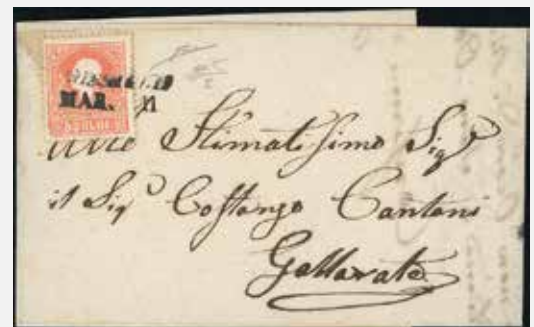 MAR. 11
5 SOLDI
Stimatissimo Sigr
il Sigr Costanzo Cantoni
Gallarate